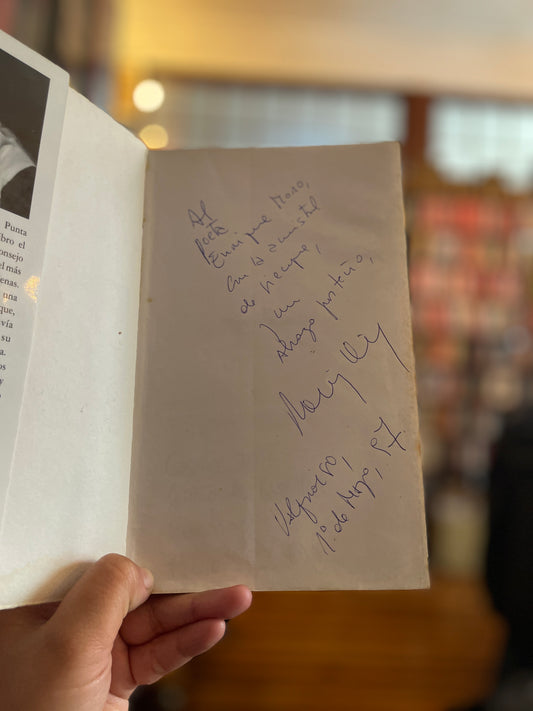 Punta
bro el
onsejo
el más
enas.
una
que,
vía
su
a.
os
y
Al
poeta
Enrique Moro,
con la amistad
de siempre,
y un
abrazo porteño,
Valparaíso,
1º de Mayo, 97.